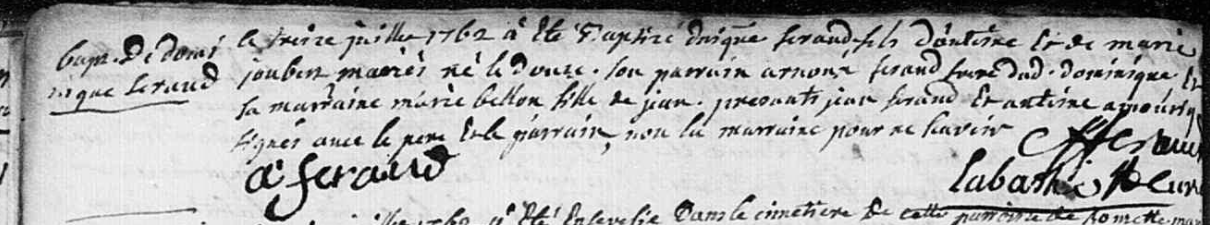 Bapt. de domi
nique feraud
le treize juillet 1762 a été Baptizé dnique feraud fils d'antoine et de marie
joubert mariés né le douze. son parrain arnoux feraud frere dud. dominique et
sa marraine marie bellon fille de jean. presents jean feraud et antoine amoursq
signés avec le pere et le parrain, non la marraine pour ne scavoir
feraud
a feraud
curé
juillet 1762 a été Ensevelie Dans le cimetiere de cette parroisse de